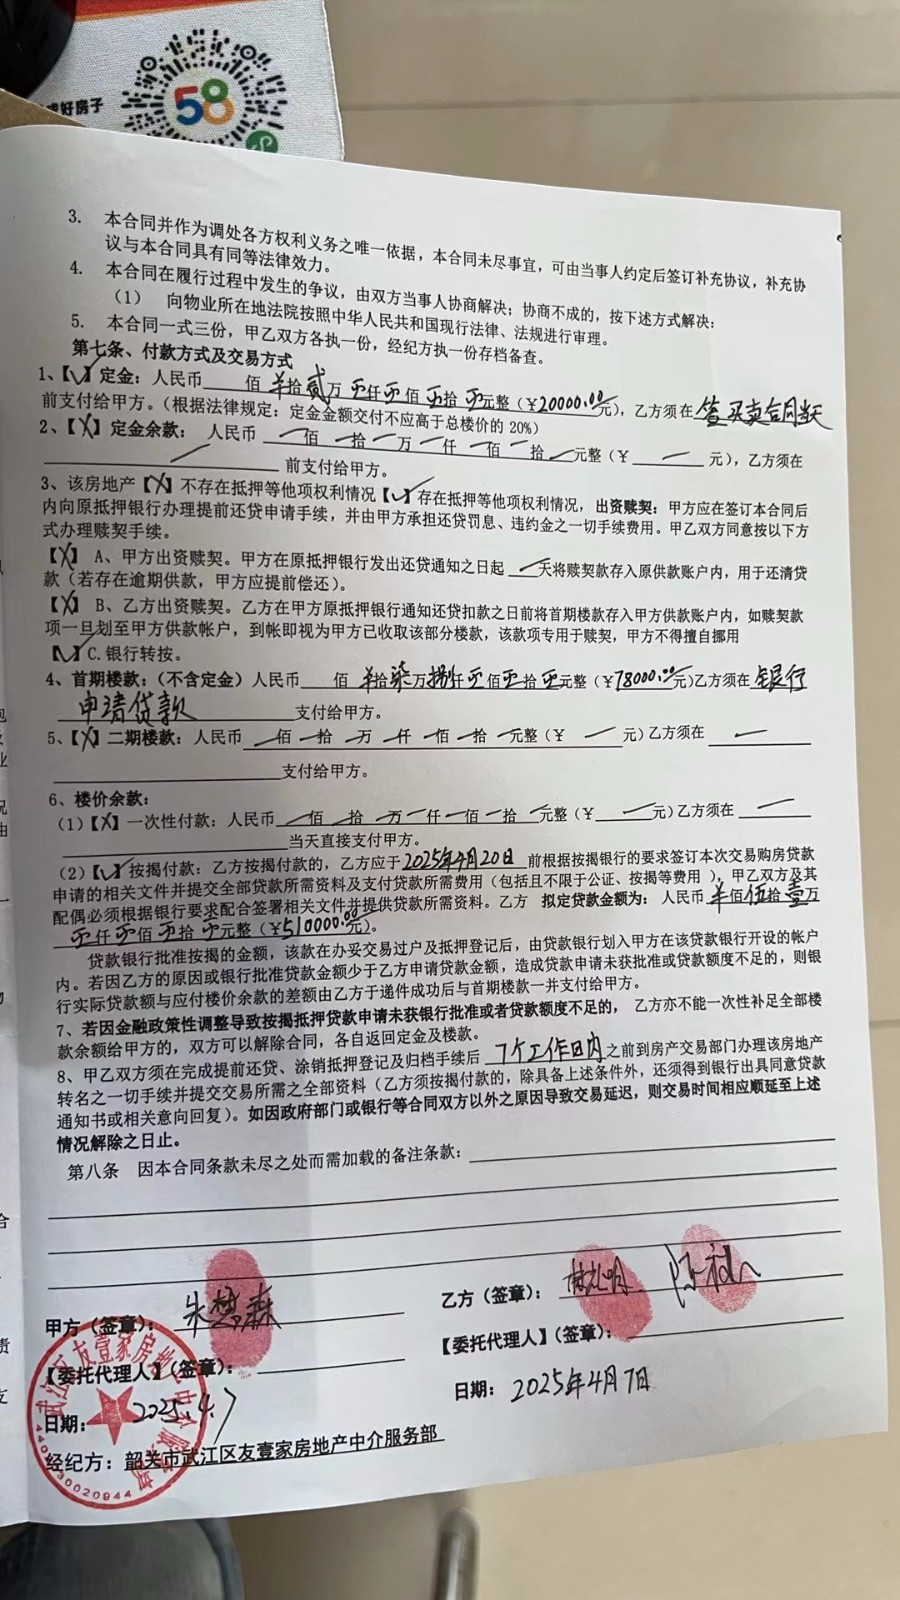 好房子
58
3. 本合同并作为调处各方权利义务之唯一依据，本合同未尽事宜，可由当事人约定后签订补充协议，补充协
议与本合同具有同等法律效力。
4. 本合同在履行过程中发生的争议，由双方当事人协商解决；协商不成的，按下述方式解决：
（1） 向物业所在地法院按照中华人民共和国现行法律、法规进行审理。
5. 本合同一式三份，甲乙双方各执一份，经纪方执一份存档备查。
第七条、付款方式及交易方式
1、【√】定金：人民币 佰 拾贰万 仟 佰 拾 元整（￥20000.00元），乙方须在 签买卖合同当天
前支付给甲方。（根据法律规定：定金金额交付不应高于总楼价的 20%）
2、【X】定金余款： 人民币 佰 拾 万 仟 佰 拾 元整（￥ 元），乙方须在
前支付给甲方。
3、该房地产【X】不存在抵押等他项权利情况【√】存在抵押等他项权利情况，出资赎契：甲方应在签订本合同后
内向原抵押银行办理提前还贷申请手续，并由甲方承担还贷罚息、违约金之一切手续费用。甲乙双方同意按以下方
式办理赎契手续。
【X】 A、甲方出资赎契。甲方在原抵押银行发出还贷通知之日起 天将赎契款存入原供款账户内，用于还清贷
款（若存在逾期供款，甲方应提前偿还）。
【X】 B、乙方出资赎契。乙方在甲方原抵押银行通知还贷扣款之日前将首期楼款存入甲方供款账户内，如赎契款
项一旦划至甲方供款帐户，到帐即视为甲方已收取该部分楼款，该款项专用于赎契，甲方不得擅自挪用
【√】C.银行转按。
4、首期楼款：（不含定金）人民币 佰 拾柒万捌仟 佰 拾 元整（￥78000.00元)乙方须在 银行
申请贷款 支付给甲方。
5、【X】二期楼款：人民币 佰 拾 万 仟 佰 拾 元整（￥ 元)乙方须在
支付给甲方。
6、楼价余款：
（1）【X】一次性付款：人民币 佰 拾 万 仟 佰 拾 元整（￥ 元)乙方须在
当天直接支付甲方。
（2）【√】按揭付款：乙方按揭付款的，乙方应于2025年4月20日 前根据按揭银行的要求签订本次交易购房贷款
申请的相关文件并提交全部贷款所需资料及支付贷款所需费用（包括且不限于公证、按揭等费用 ），甲乙双方及其
配偶必须根据银行要求配合签署相关文件并提供贷款所需资料。乙方 拟定贷款金额为： 人民币 佰伍拾壹万
仟 佰 拾 元整（￥510000.00元）。
贷款银行批准按揭的金额，该款在办妥交易过户及抵押登记后，由贷款银行划入甲方在该贷款银行开设的帐户
内。若因乙方的原因或银行批准贷款金额少于乙方申请贷款金额，造成贷款申请未获批准或贷款额度不足的，则银
行实际贷款额与应付楼价余款的差额由乙方于递件成功后与首期楼款一并支付给甲方。
7、若因金融政策性调整导致按揭抵押贷款申请未获银行批准或者贷款额度不足的， 乙方亦不能一次性补足全部楼
款余额给甲方的，双方可以解除合同，各自返回定金及楼款。
8、甲乙双方须在完成提前还贷、涂销抵押登记及归档手续后 7个工作日内 之前到房产交易部门办理该房地产
转名之一切手续并提交交易所需之全部资料（乙方须按揭付款的，除具备上述条件外，还须得到银行出具同意贷款
通知书或相关意向回复）。如因政府部门或银行等合同双方以外之原因导致交易延迟，则交易时间相应顺延至上述
情况解除之日止。
第八条 因本合同条款未尽之处而需加载的备注条款：
甲方（签章）： 朱梦森
乙方（签章）：
【委托代理人】（签章）：
【委托代理人】（签章）：
日期： 2025.4.7
日期： 2025年4月7日
经纪方：韶关市武江区友壹家房地产中介服务部